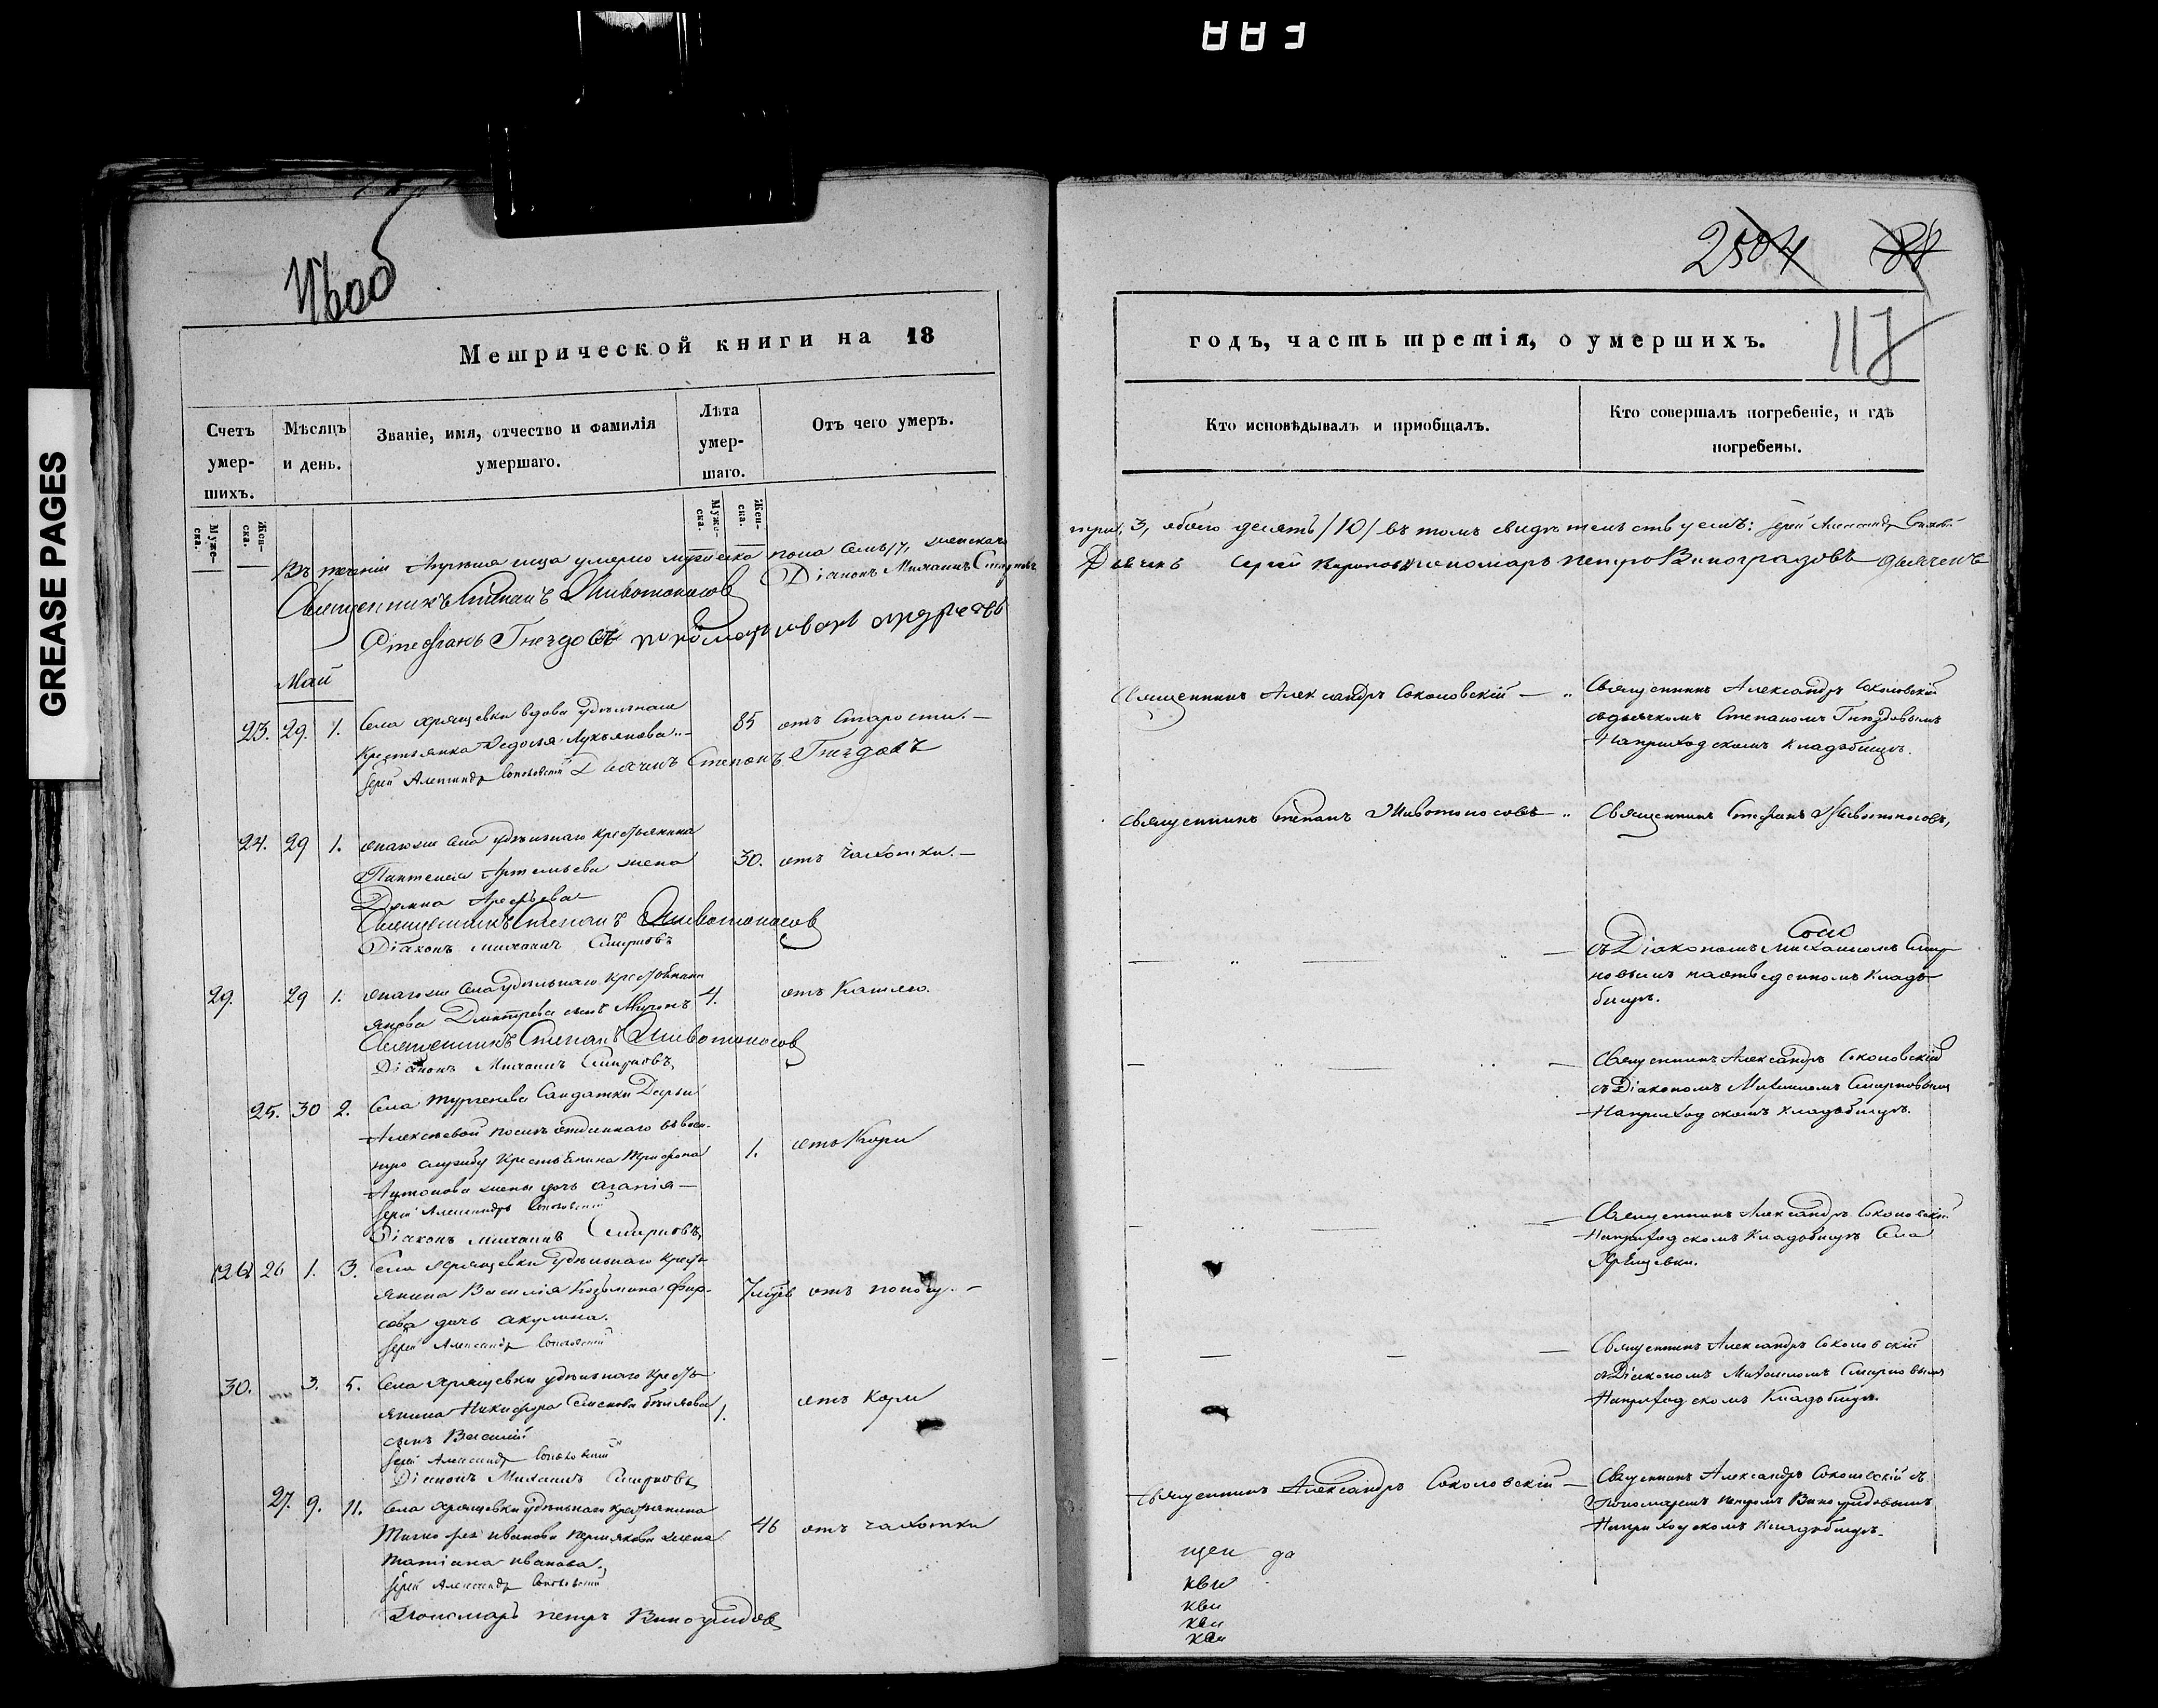 GREASE PAGES
Метрической книги на 18
Счетъ умер-шихъ.
Мѣсяцъ и день.
Званіе, имя, отчество и фамилія
умершаго.
Лѣта
умер-
шаго.
Отъ чего умеръ.
Муже-ска.
Жен-ска.
Муже-ска.
Жен-ска.
Въ теченіи Апрѣля умерло мужеска пола семь /7/, женскаго
Священникъ Степанъ Животоносов Діаконъ Михаилъ Смирновъ
Стефанъ Гнездовъ
Май
23. 29. 1. Села Хрящевки вдова удѣльная
крестьянка Федосья Лукьянова 85 отъ старости.
Іерей Александр Соколовский Дьячекъ Степанъ Гнездовъ
24. 29 1. Онагоже села удѣльнаго крестьянина
Пантелея Артемьева жена 30. отъ чахотки.
Домна Арефьева
Священникъ Степанъ Животоносов
Діаконъ Михаилъ Смирновъ
29. 29 1. Онагоже села удѣльнаго крестьянина
Дмитрева сынъ 4. отъ кашлю.
Священникъ Степанъ Животоносов
Діаконъ Михаилъ Смирновъ
25. 30 2. Села Тургенева солдатки Дарьи
Алексѣевой
службу крестьянина Трифона 1. отъ кори
Антонова жены дочь Агапія
Іерей Александръ Соколовский
Діаконъ Михаилъ Смирновъ
26 1. 3. Села Хрящевки удѣльнаго кресть-
янина Василія Козьмина Фир- 7 отъ поносу.
сова дочь Акулина.
Іерей Александр Соколовский
30. 3. 5. Села Хрящевки удѣльнаго кресть-
янина Никифора 1. отъ кори
сынъ Василій
Іерей Александр Соколовский
Діаконъ Михаилъ Смирновъ
27. 9. 11. Села Хрящевки удѣльнаго крестьянина
Тимофея Иванова жена 46 отъ чахотки
Татіана Иванова.
Іерей Александр Соколовский
Пономарь Петръ Виноградов
2504
117
годъ, часть третія, о умершихъ.
Кто исповѣдывалъ и пріобщалъ.
Кто совершалъ погребеніе, и гдѣ
погребены.
3, обоего десять /10/ въ томъ свидѣтельствуемъ: Іерей Александр
Дьячекъ Сергей пономарь Петръ Виноградовъ дьячекъ
Священникъ Александръ Соколовскій
Священникъ Александръ Соколовскій
съ дьячкомъ Степаномъ Гнездовымъ
На приходскомъ кладбищѣ.
Священникъ Степанъ Животоносовъ
Священникъ Стефанъ Животоносовъ,
съ Діакономъ Михаиломъ Смир-
новымъ на отведенномъ клад-
бищѣ.
Священникъ Александръ Соколовскій
съ Діакономъ Михаиломъ Смирновымъ
На приходскомъ кладбищѣ.
Священникъ Александръ Соколовскій
На приходскомъ кладбищѣ села
Хрящевки.
Священникъ Александръ Соколовскій
съ Діакономъ Михаиломъ Смирновымъ
На приходскомъ кладбищѣ.
Священникъ Александръ Соколовскій
Священникъ Александръ Соколовскій съ
Пономаремъ Петромъ Виноградовымъ
На приходскомъ кладбищѣ.